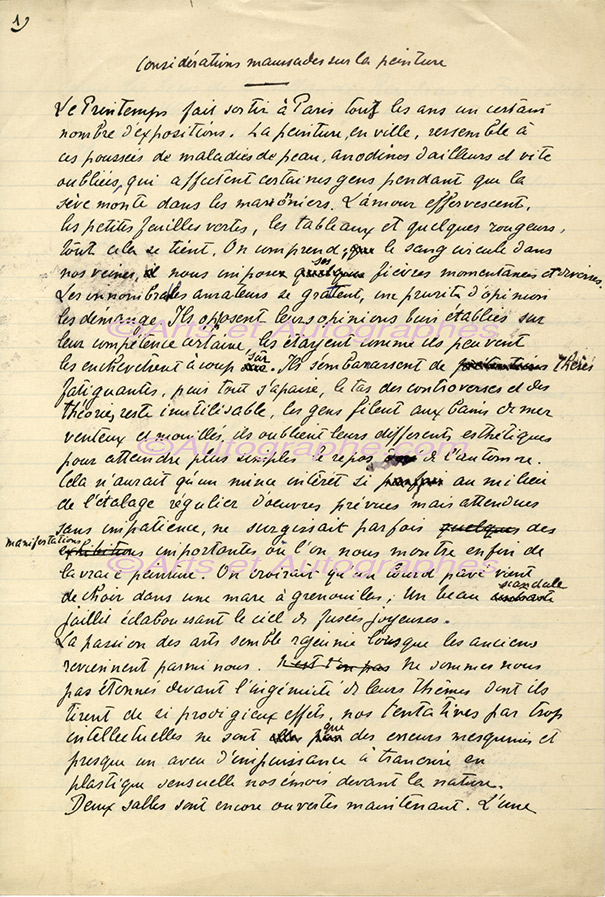 1)
Considérations maussades sur la peinture
Le Printemps fait sortir à Paris tous les ans un certain
nombre d'expositions. La peinture, en ville, ressemble à
ces poussées de maladies de peau, anodines d'ailleurs et vite
oubliées, qui affectent certaines gens pendant que la
sève monte dans les marronniers. L'amour effervescent,
les petites feuilles vertes, les tableaux et quelques rougeurs,
tout cela se tient. On comprend, que le sang circule dans
nos veines, il nous impose quelques ses fièvres momentanées et diverses.
Les innombrables amateurs se grattent, un prurit d'opinion
les démange. Ils opposent leurs opinions bien établies sur
©Arts et Autographes
leur compétence certaine, les étayent comme ils peuvent
les enchevêtrent à coup sûr. Ils s'embarrassent de prétentions théories
fatigantes, puis tout s'apaise, le tas des controverses et des
théories reste inutilisable, les gens filent aux bains de mer
venteux et mouillés, ils oublient leurs différents esthétiques
©Autographe.com
pour attendre plus simples le repos de l'automne.
Cela n'aurait qu'un mince intérêt si parfois au milieu
de l'étalage régulier d'oeuvres prévues mais attendues
sans impatience, ne surgissait parfois quelques des
manifestations
exhibitions importantes où l'on nous montre enfin de
©Arts et Autographes
la vraie peinture. On croirait qu'un lourd pavé vient
de choir dans une mare à grenouilles; Un beau scandale
jaillit éclaboussant le ciel de fusées joyeuses.
La passion des arts semble rajeunie lorsque les anciens
reviennent parmi nous. N'est-on pas Ne sommes nous
pas étonnés devant l'ingénuité de leurs thèmes dont ils
tirent de si prodigieux effets, nos tentatives par trop
intellectuelles ne sont que des erreurs mesquines et
presque un aveu d'impuissance à transcrire en
plastique sensuelle nos émois devant la nature.
Deux salles sont encore ouvertes maintenant. L'une